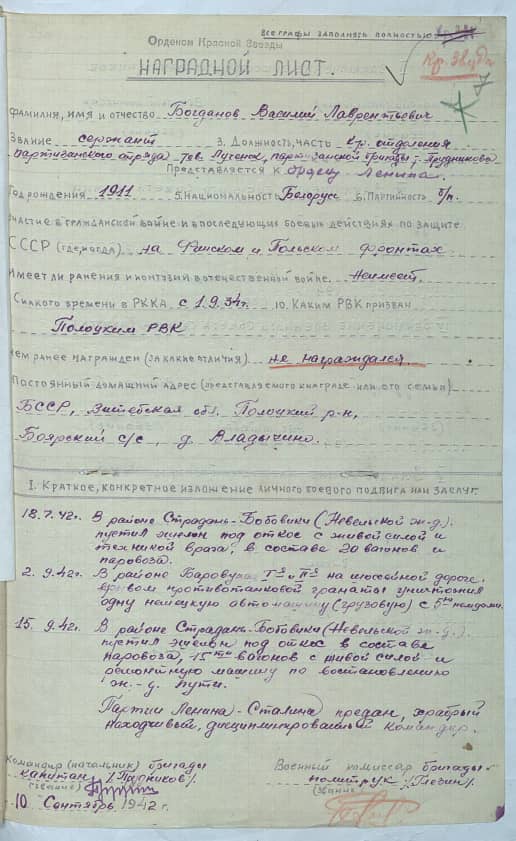 ВСЕ ГРАФЫ ЗАПОЛНЯТЬ ПОЛНОСТЬЮ
Орденом Красной Звезды
Кр. Звезда
НАГРАДНОЙ ЛИСТ.
Фамилия, имя и отчество Богданов Василий Лаврентьевич
Звание сержант 3. Должность, часть К-р. отделения
партизанского отряда тов. Лученок, партизанской бригады т. Прудникова
Представляется к ордену Ленина.
Год рождения 1911 5. Национальность Белорус 6. Партийность б/п.
Участие в гражданской войне и в последующих боевых действиях по защите
СССР (где, когда) на Финском и Польском фронтах
Имеет ли ранения и контузии в отечественной войне. Не имеет.
С какого времени в РККА с 1.9.34г. 10. Каким РВК призван
Полоцким РВК
Чем ранее награжден (за какие отличия). не награждался.
Постоянный домашний адрес (представляемого к награде или его семьи)
БССР, Витебская обл. Полоцкий р-н,
Боярский с/с, д. Владычино.
I. Краткое, конкретное изложение личного боевого подвига или заслуг.
18.7.42г. В районе Страдань-Бобовики (Невельской ж-д).
пустил эшелон под откос с живой силой и
техникой врага, в составе 20 вагонов и
паровоза.
2. 9.42г. В районе Баровуха Iая и IIая на шоссейной дороге,
взрывом противотанковой гранаты уничтожил
одну немецкую автомашину (грузовую) с 5ю немцами.
15. 9.42г. В районе Страдань-Бобовики (Невельской ж-д).
пустил эшелон под откос в составе
паровоза, 15ти вагонов с живой силой и
ремонтную машину по востановлению
ж-д. пути.
Партии Ленина-Сталина предан, храбрый
находчивый, дисциплинированый командир.
Командир (начальник) бригады
капитан /Прудников/.
(звание)
Военный комиссар бригады-
политрук /Глезин/.
(звание)
10 Сентябрь 1942 г.